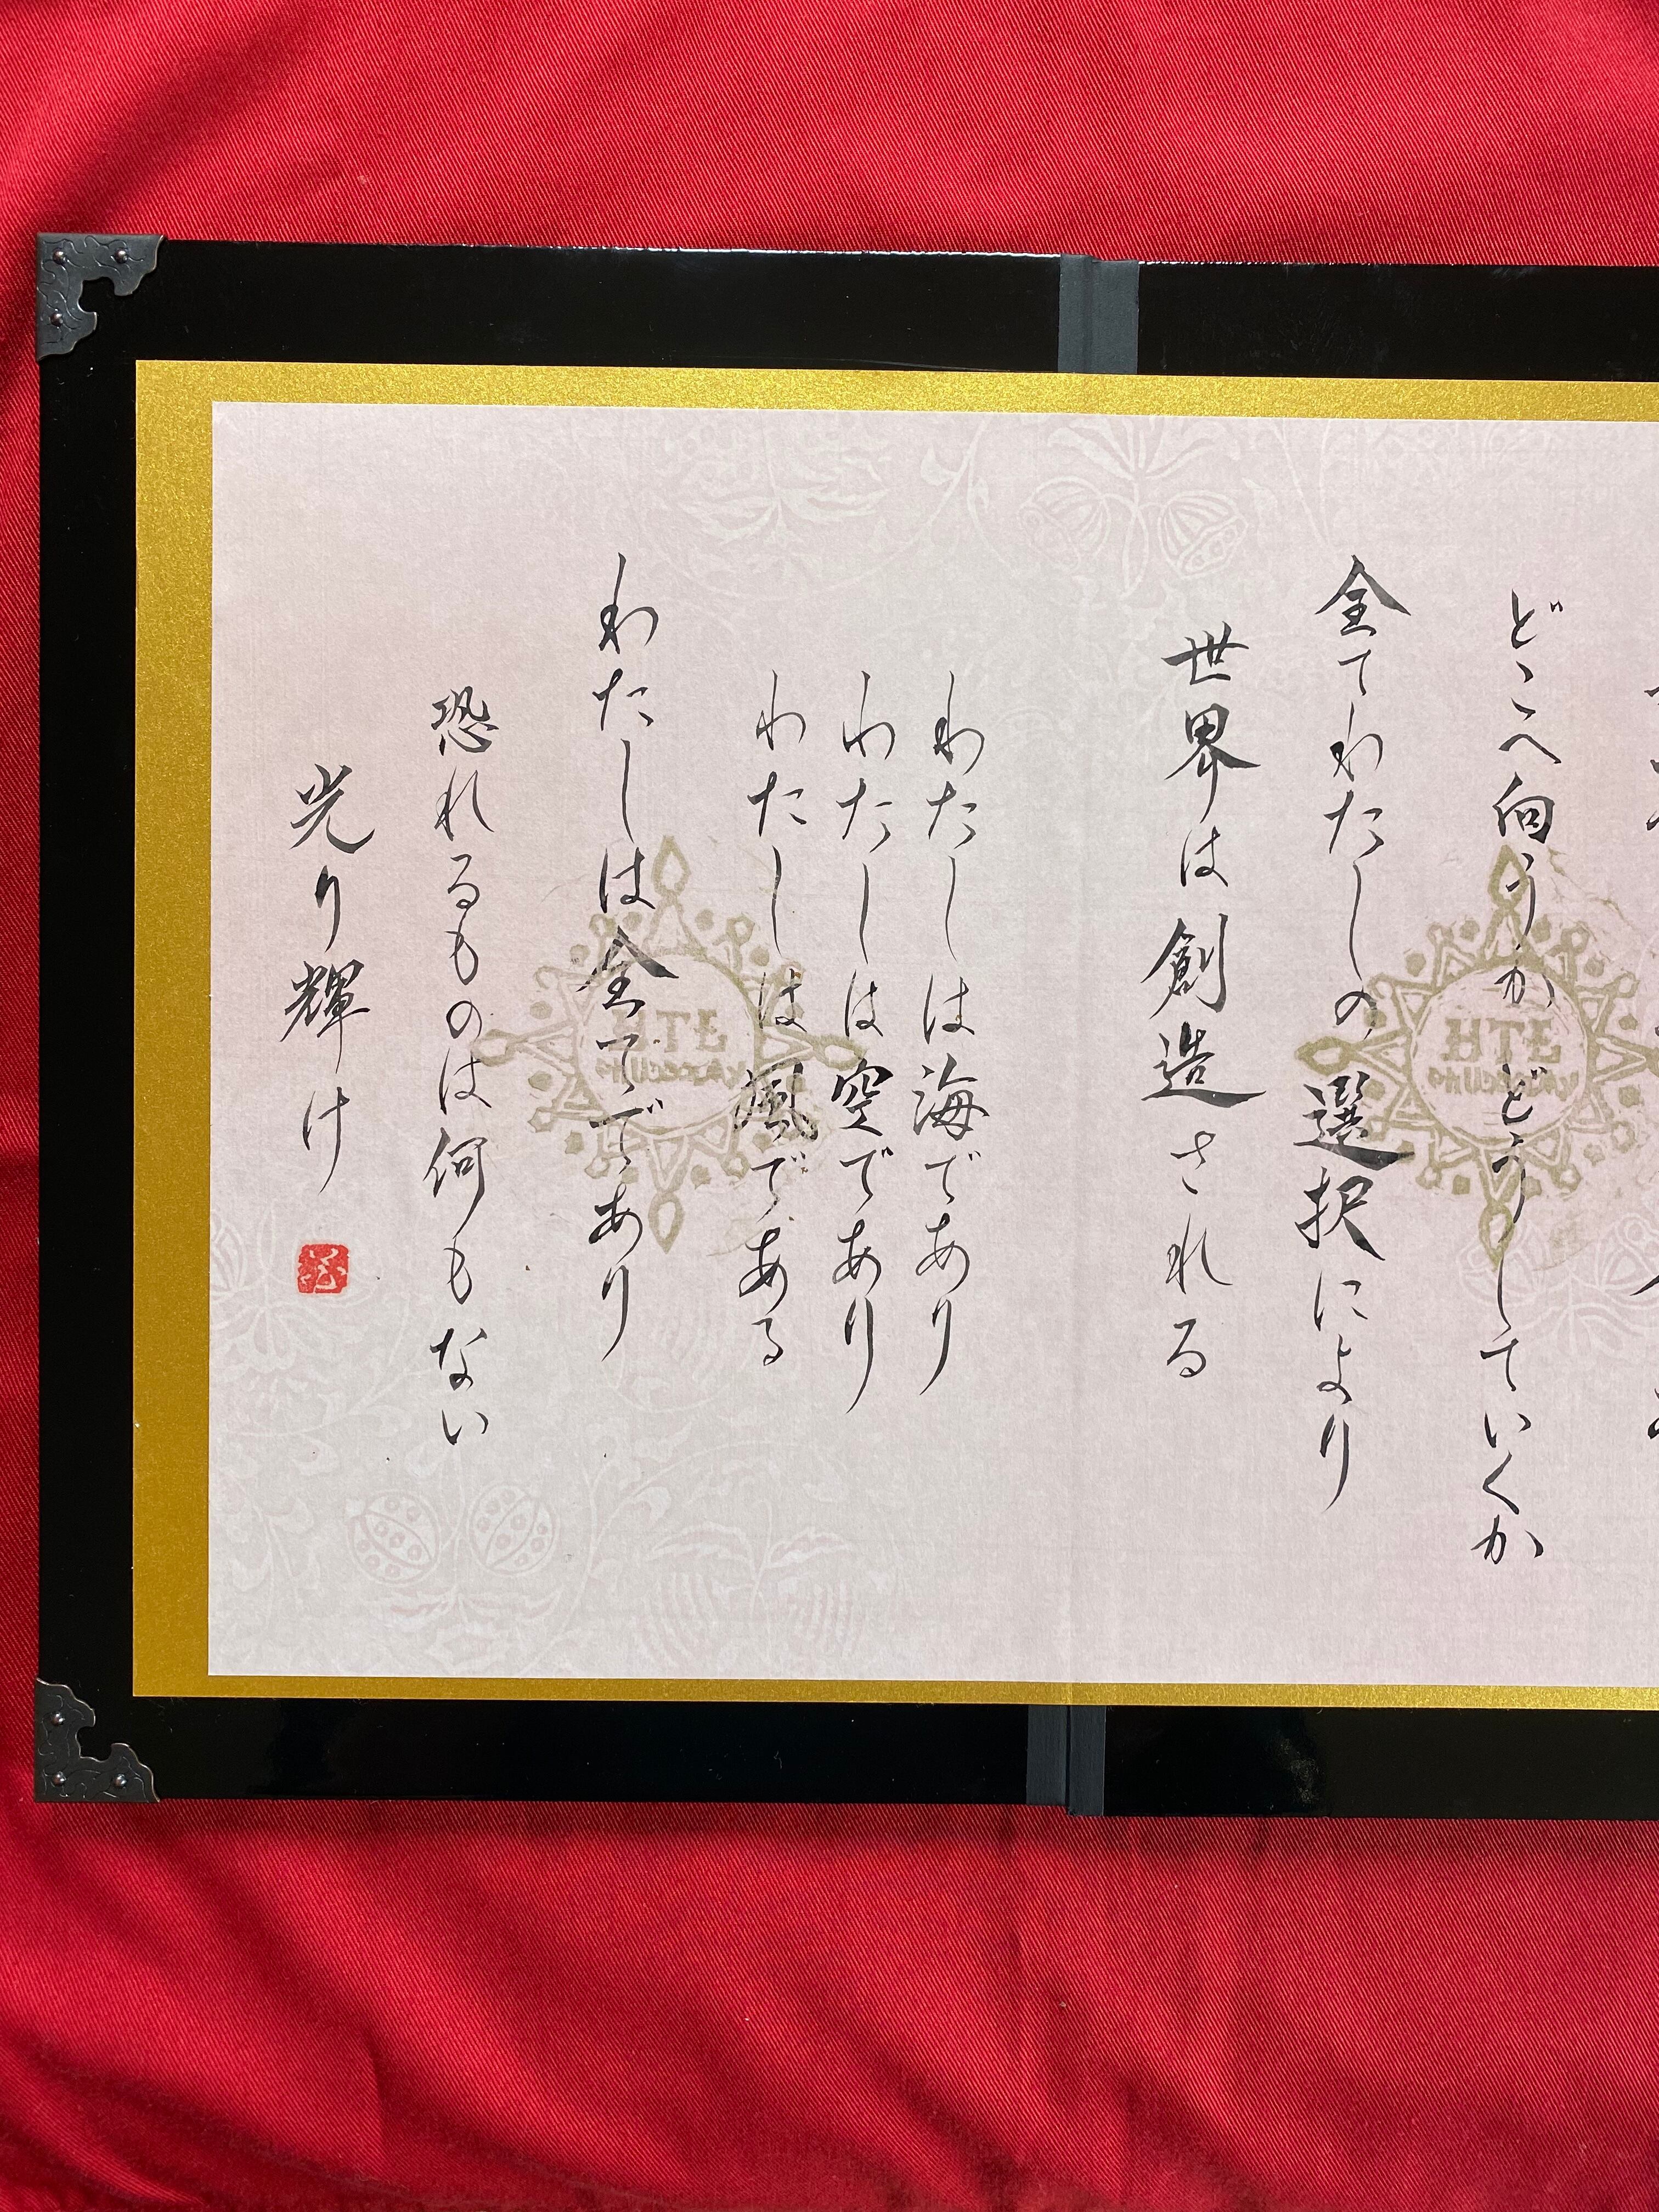 どこへ向うか どうしていくか
全てわたしの選択により
世界は創造される
わたしは海であり
わたしは空であり
わたしは風である
わたしは全てであり
恐れるものは何もない
光り輝け
HTE
HTE